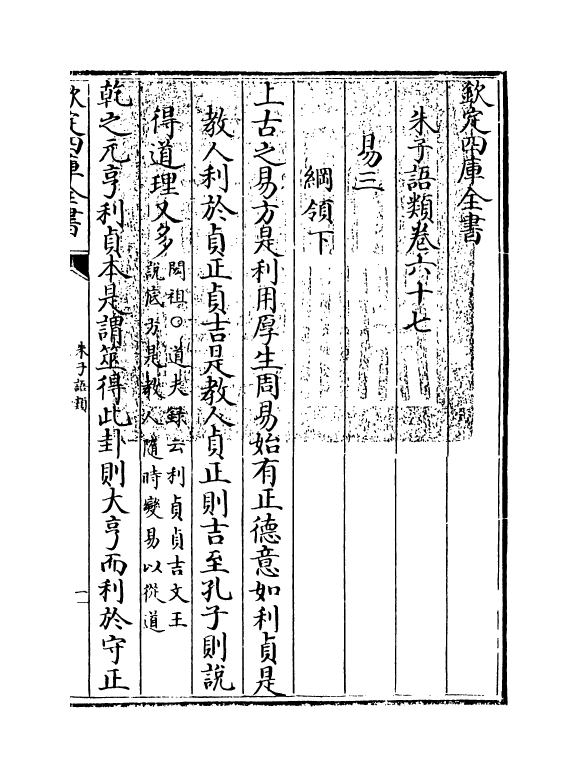 欽定四庫全書
朱子語類卷六十七
易三
綱領下
上古之易方是利用厚生周易始有正德意如利貞是
教人利於貞正貞吉是教人貞正則吉至孔子則説
得道理又多閎祖○道夫録云利貞貞吉文王
説底方是教人隨時變易以從道
乾之元亨利貞本是謂筮得此卦則大亨而利於守正
欽定四庫全書
朱子語類
一